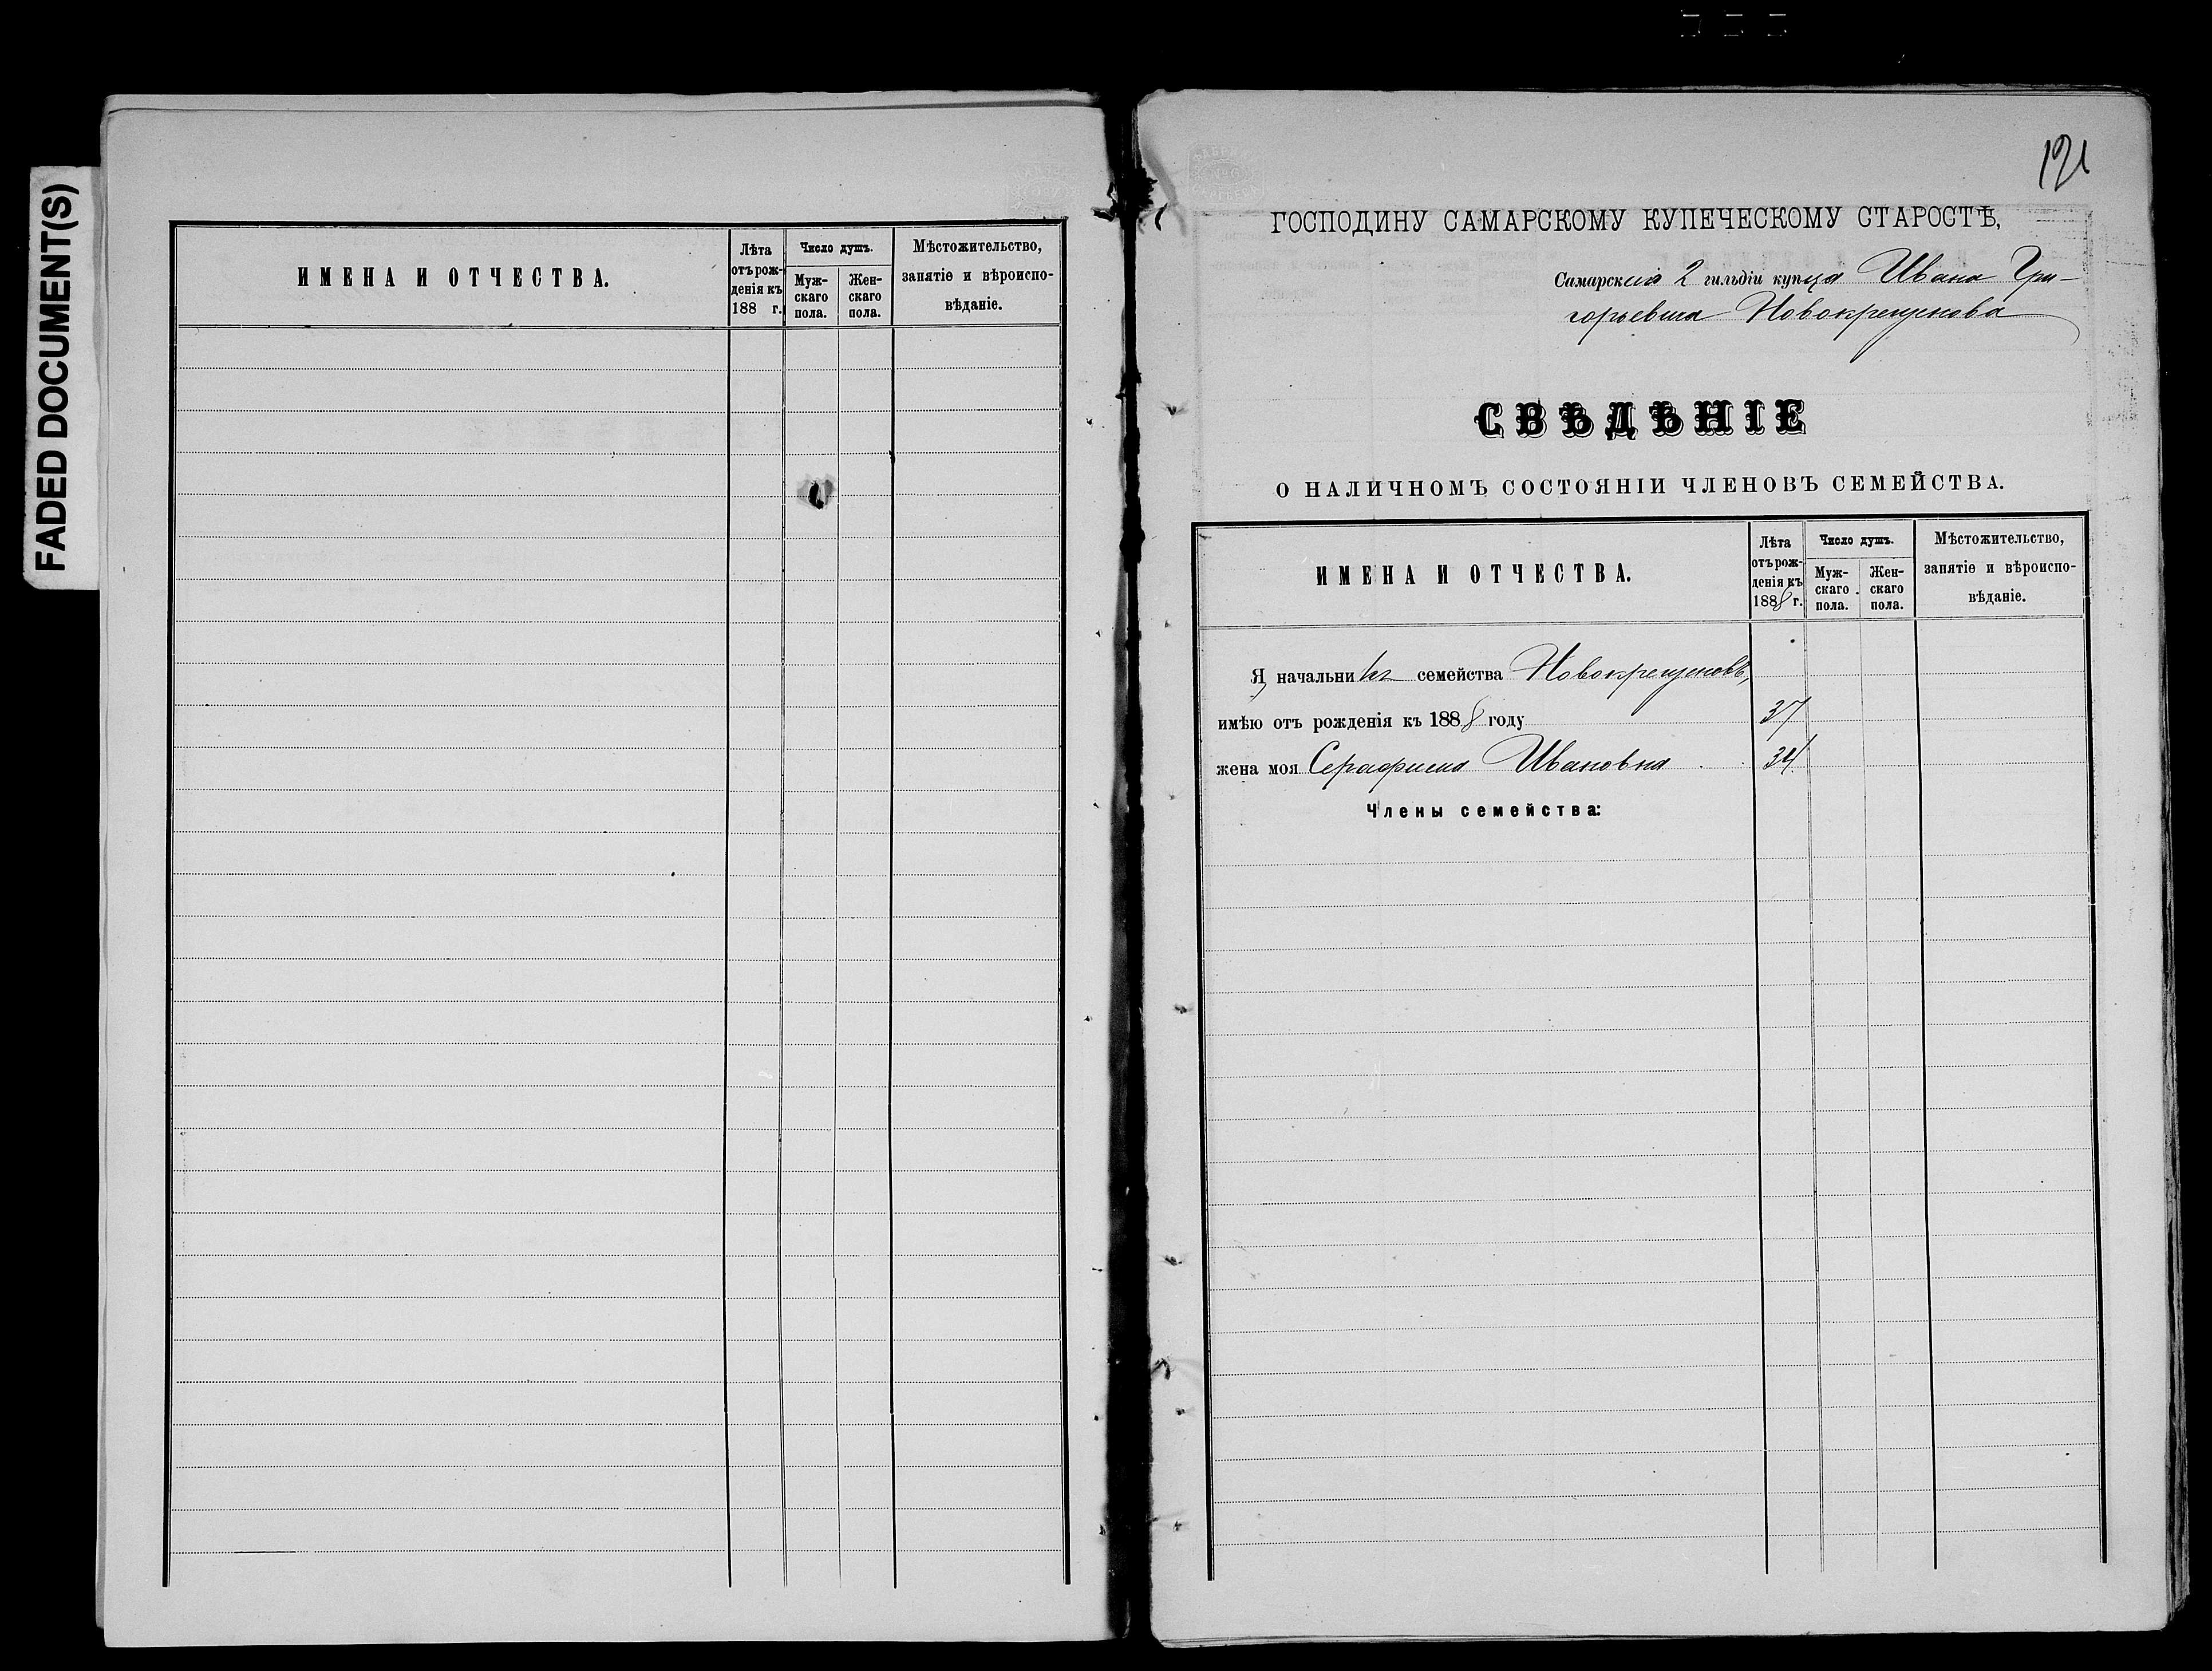 FADED DOCUMENT(S)
ИМЕНА И ОТЧЕСТВА.
Лѣта
отъ рож-
денія къ
188 г.
Число душъ.
Муж-
скаго
пола.
Жен-
скаго
пола.
Мѣстожительство,
занятіе и вѣроиспо-
вѣданіе.
121
ГОСПОДИНУ САМАРСКОМУ КУПЕЧЕСКОМУ СТАРОСТѢ,
Самарскаго 2 гильдіи купца Ивана Гри-
горьевича Новокрещенова
СВѢДѢНІЕ
О НАЛИЧНОМЪ СОСТОЯНІИ ЧЛЕНОВЪ СЕМЕЙСТВА.
ИМЕНА И ОТЧЕСТВА.
Лѣта
отъ рож-
денія къ
1888 г.
Число душъ.
Муж-
скаго
пола.
Жен-
скаго
пола.
Мѣстожительство,
занятіе и вѣроиспо-
вѣданіе.
Я начальникъ семейства Новокрещеновъ,
имѣю отъ рожденія къ 1888 году 37
жена моя Серафима Ивановна 34
Члены семейства: